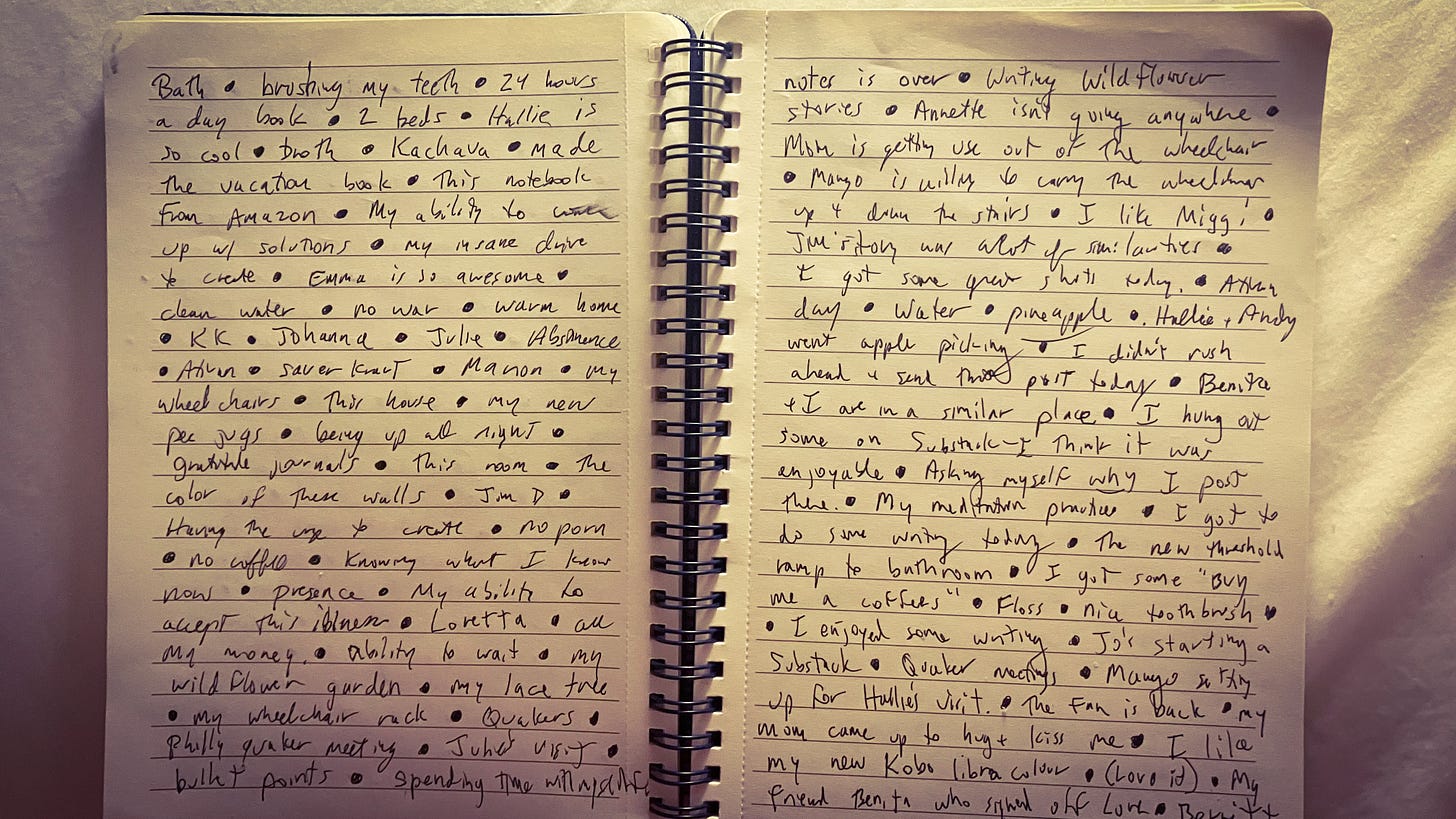 Bath • brushing my teeth • 24 hours
a day book • 2 beds • Hallie is
so cool • broth • Kachava • made
the vacation book • This notebook
from Amazon • My ability to
up w/ solutions • my insane drive
to create • Emma is so awesome •
clean water • no war • warm home
• KK • Johanna • Julie • Abstinence
• Ativan • saver kraut • Manon • my
wheelchairs • This house • my new
pee jugs • being up all night •
gratitude journals • This room • The
color of these walls • Jim D •
Having the urge to create • no porn
• no coffee • Knowing what I know
now • presence • My ability to
accept this illness • Loretta • all
my money. • ability to wait • my
wildflower garden • my lace tree
• my wheelchair rack • Quakers •
Philly quaker meeting • Julie's visit •
bullet points • spending time
notes is over • Writing Wildflower
stories • Annette isn't going anywhere •
Mom is getting use out of the wheelchair
• Mango is willing to carry the wheelchair
up & down the stairs • I like Miggi •
Jim's story was alot of similarities •
I got some great shots today. • Ativan
day • Water • pineapple • Hallie + Andy
went apple picking • I didn't rush
ahead & send this post today • Benita
+ I are in a similar place • I hung out
some on Substack-I think it was
enjoyable • Asking myself why I post
there. • My meditation practice • I got to
do some writing today • The new threshold
ramp to bathroom • I got some "Buy
me a coffees" • Floss • nice toothbrush •
• I enjoyed some writing • Jo's starting a
Substack • Quaker meetings • Mango
up for Hallie's visit. • The Fan is back • my
mom came up to hug + kiss me • I like
my new Kobo libra colour • (Love it) • My
friend Benita who signed off Love •